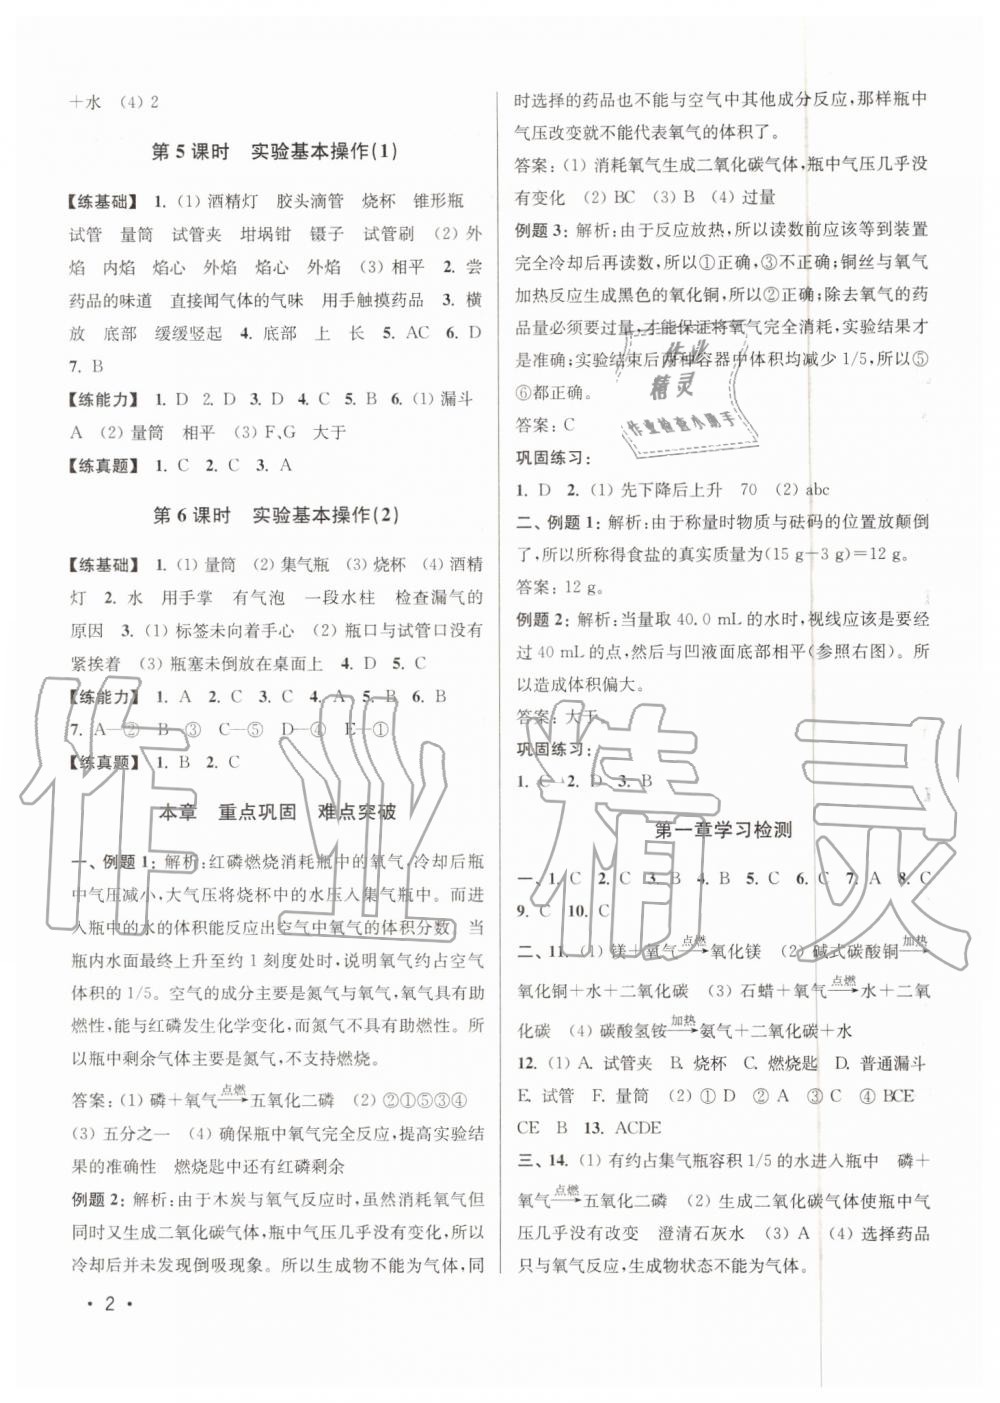 ＋水　(4) 2
第 5 课时　实验基本操作(1)
【练基础】 1. (1) 酒精灯　胶头滴管　烧杯　锥形瓶
试管　量筒　试管夹　坩埚钳　镊子　试管刷　(2) 外
焰　内焰　焰心　外焰　焰心　外焰　(3) 相平　2. 尝
药品的味道　直接闻气体的气味　用手触摸药品　3. 横
放　底部　缓缓竖起　4. 底部　上　长　5. AC　6. D
7. B
【练能力】 1. D　2. D　3. D　4. C　5. B　6. (1) 漏斗
A　(2) 量筒　相平　(3) F、G　大于
【练真题】 1. C　2. C　3. A
第 6 课时　实验基本操作(2)
【练基础】 1. (1) 量筒　(2) 集气瓶　(3) 烧杯　(4) 酒精
灯　2. 水　用手掌　有气泡　一段水柱　检查漏气的
原因　3. (1) 标签未向着手心　(2) 瓶口与试管口没有
紧挨着　(3) 瓶塞未倒放在桌面上　4. D　5. C
【练能力】 1. A　2. C　3. C　4. A　5. B　6. B
7. A—②　B—③　C—⑤　D—④　E—①
【练真题】 1. B　2. C
本章　重点巩固　难点突破
一、例题 1：解析：红磷燃烧消耗瓶中的氧气，冷却后瓶
中气压减小，大气压将烧杯中的水压入集气瓶中。而进
入瓶中的水的体积能反应出空气中氧气的体积分数。当
瓶内水面最终上升至约 1 刻度处时，说明氧气约占空气
体积的 1/5。空气的成分主要是氮气与氧气，氧气具有助
燃性，能与红磷发生化学变化，而氮气不具有助燃性。所
以瓶中剩余气体主要是氮气，不支持燃烧。
答案：(1) 磷＋氧气 点燃→ 五氧化二磷　(2) ②①⑤③④
(3) 五分之一　(4) 确保瓶中氧气完全反应，提高实验结
果的准确性　燃烧匙中还有红磷剩余
例题 2：解析：由于木炭与氧气反应时，虽然消耗氧气但
同时又生成二氧化碳气体，瓶中气压几乎没有变化，所以
冷却后并未发现倒吸现象。所以生成物不能为气体，同
• 2 •
时选择的药品也不能与空气中其他成分反应，那样瓶中
气压改变就不能代表氧气的体积了。
答案：(1) 消耗氧气生成二氧化碳气体，瓶中气压几乎没
有变化　(2) BC　(3) B　(4) 过量
例题 3：解析：由于反应放热，所以读数前应该等到装置
完全冷却后再读数，所以①正确，③不正确；铜丝与氧气
加热反应生成黑色的氧化铜，所以②正确；除去氧气的药
品量必须要过量，才能保证将氧气完全消耗，实验结果才
是准确；实验结束后两种容器中体积均减少 1/5，所以⑤
⑥都正确。
答案：C
巩固练习：
1. D　2. (1) 先下降后上升　70　(2) abc
二、例题 1：解析：由于称量时物质与砝码的位置放颠倒
了，所以所称得食盐的真实质量为(15 g－3 g)＝12 g。
答案：12 g。
例题 2：解析：当量取 40.0 mL 的水时，视线应该是要经
过 40 mL 的点，然后与凹液面底部相平(参照右图)。所
以造成体积偏大。
答案：大于
巩固练习：
1. C　2. D　3. B
第一章学习检测
一、1. C　2. C　3. B　4. B　5. C　6. C　7. A　8. C
9. C　10. C
二、11. (1) 镁＋氧气 点燃→ 氧化镁　(2) 碱式碳酸铜 加热→
氧化铜＋水＋二氧化碳　(3) 石蜡＋氧气 点燃→ 水＋二氧
化碳　(4) 碳酸氢铵 加热→ 氨气＋二氧化碳＋水
12. (1) A. 试管夹　B. 烧杯　C. 燃烧匙　D. 普通漏斗
E. 试管　F. 量筒　(2) ① D　② A　③ C　④ BCE
CE　B　13. ACDE
三、14. (1) 有约占集气瓶容积 1/5 的水进入瓶中　磷＋
氧气 点燃→ 五氧化二磷　(2) 生成二氧化碳气体使瓶中气
压几乎没有改变　澄清石灰水　(3) A　(4) 选择药品
只与氧气反应，生成物状态不能为气体。
作业
精灵
作业检查小助手
作业精灵